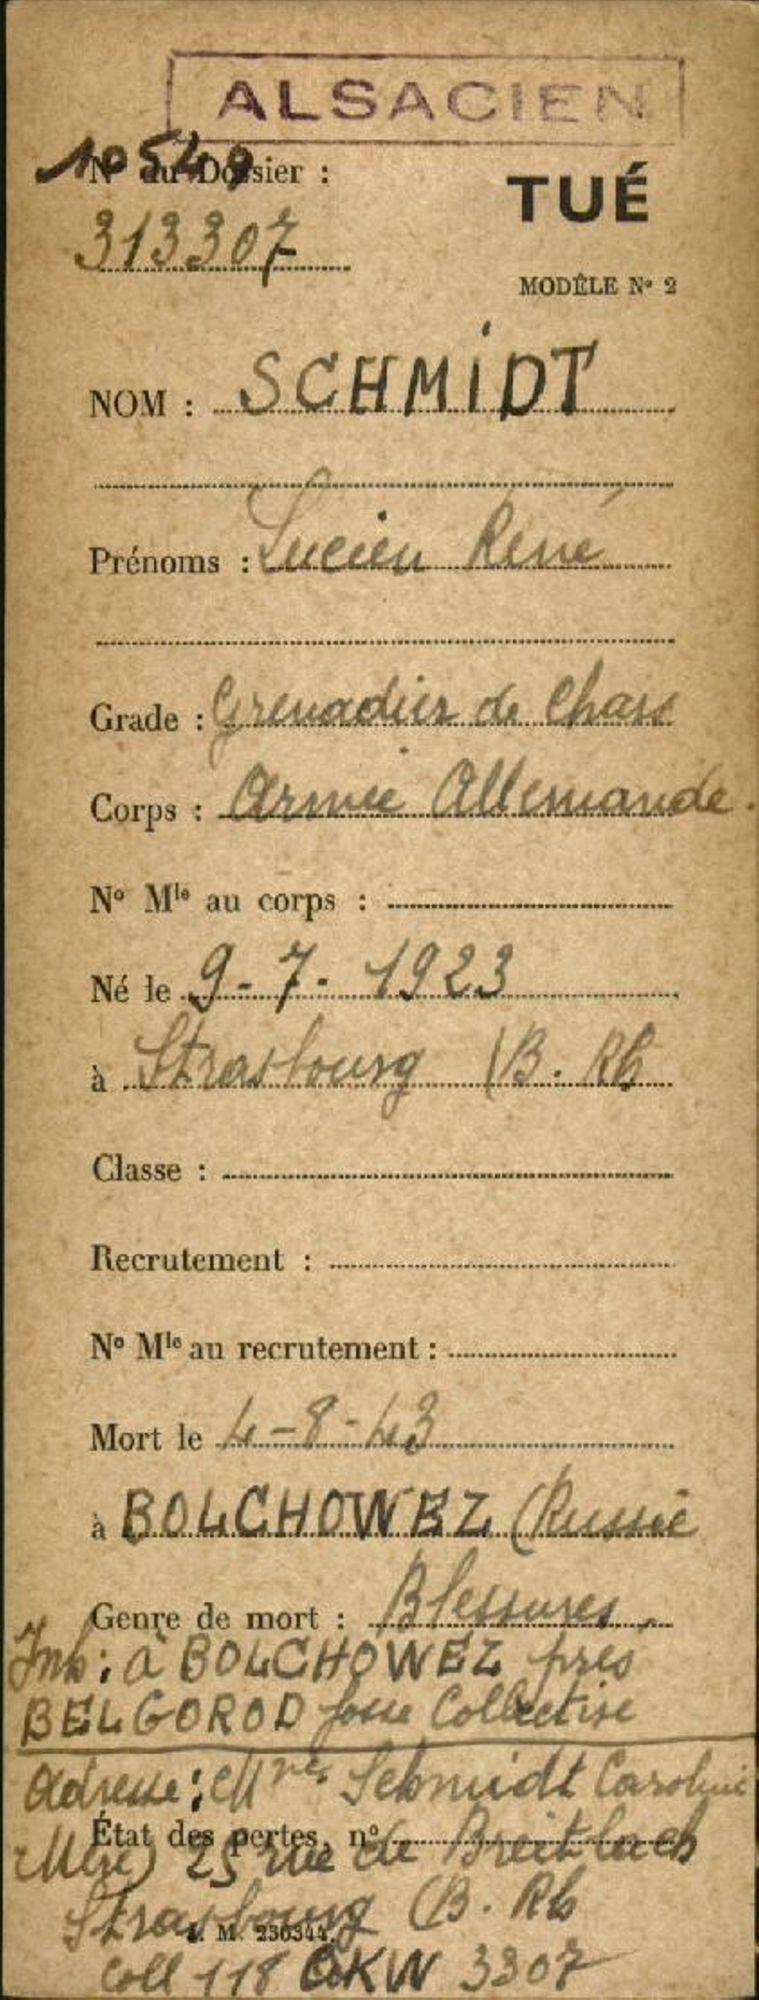 ALSACIEN
10549
N° du Dossier :
313307
TUÉ
MODÈLE N° 2
NOM : SCHMIDT
Prénoms : Lucien René
Grade : Grenadier de Chars
Corps : Armée Allemande.
N° Mle au corps :
Né le 9-7-1923
à Strasbourg (B. Rh
Classe :
Recrutement :
N° Mle au recrutement :
Mort le 4-8-43
à BOLCHOWEZ (Russie
Genre de mort : Blessures.
Inh: à BOLCHOWEZ près
BELGOROD fosse Collective
Adresse: Mme Schmidt Caroline
État des pertes, n°
(Mère) 25 rue de Breitlach
Strasbourg (B. Rh
M. 230344.
Coll 118 OKW 3307